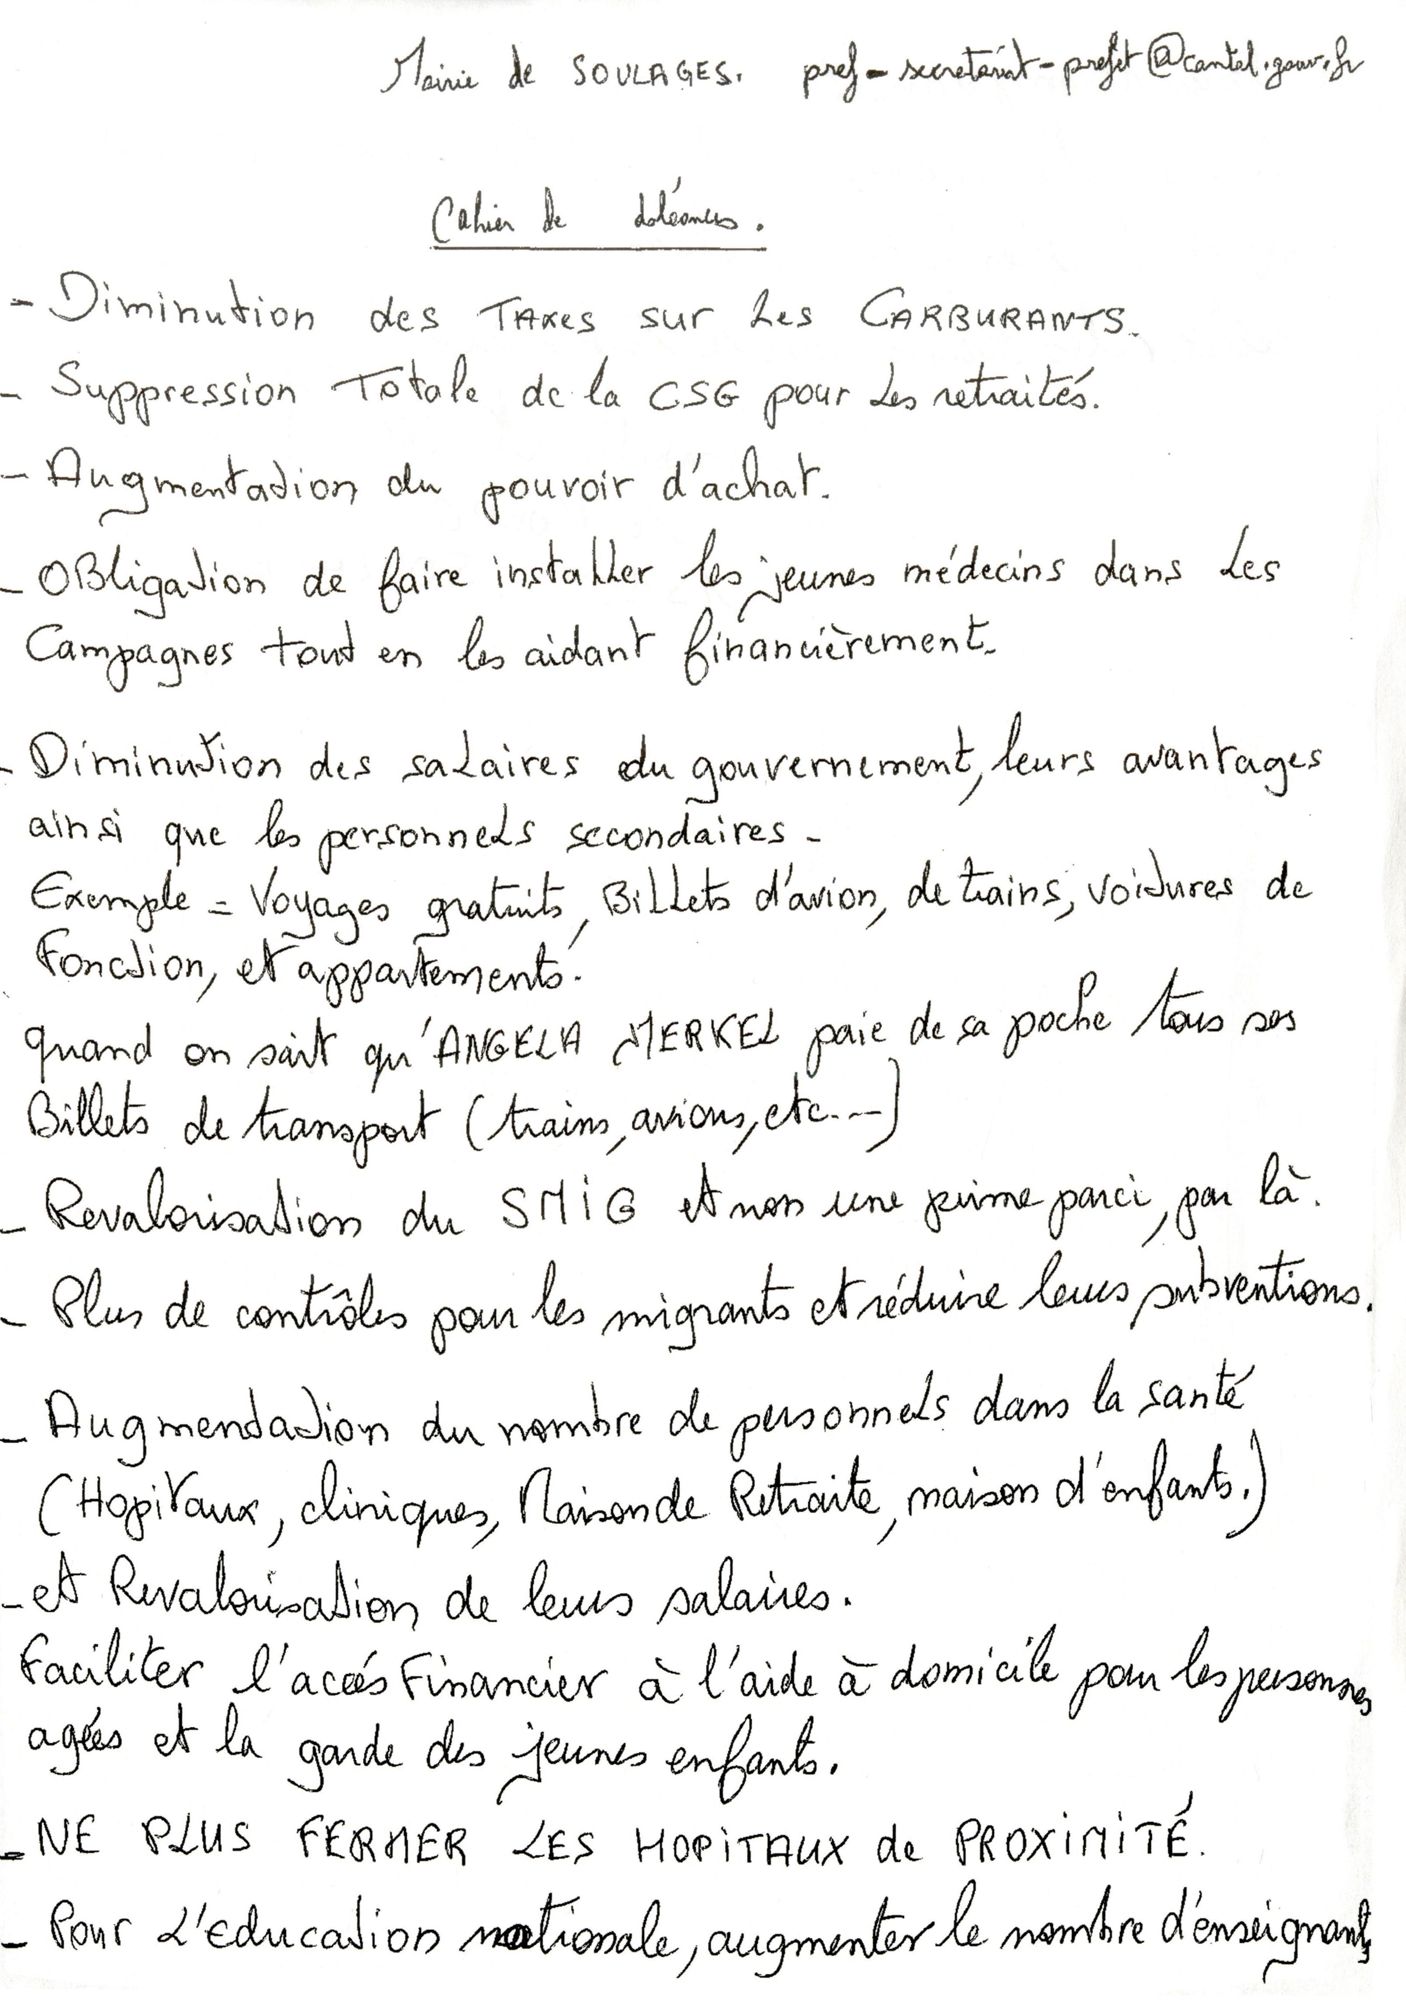 Mairie de SOULAGES. pref-secretariat-prefet@cantal.gouv.fr
Cahier de doléances.
- Diminution des TAXES sur Les CARBURANTS.
- Suppression Totale de la CSG pour Les retraités.
- Augmentation du pouvoir d'achat.
- OBligation de faire installer les jeunes médecins dans Les
Campagnes tout en les aidant financièrement.
- Diminution des salaires du gouvernement, leurs avantages
ainsi que les personnels secondaires -
Exemple = Voyages gratuits, Billets d'avion, de trains, voitures de
Fonction, et appartements.
quand on sait qu'ANGELA MERKEL paie de sa poche tous ses
Billets de transport (trains, avions, etc...)
- Revalorisation du SMIG et non une prime parci, par là.
- Plus de contrôles pour les migrants et réduire leurs subventions.
- Augmentation du nombre de personnels dans la santé
(Hopitaux, cliniques, Maison de Retraite, maison d'enfants.)
- et Revalorisation de leurs salaires.
Faciliter l'accés Financier à l'aide à domicile pour les personnes
agées et la garde des jeunes enfants.
- NE PLUS FERMER LES HOPITAUX de PROXIMITÉ.
- Pour L'Education nationale, augmenter le nombre d'enseignants